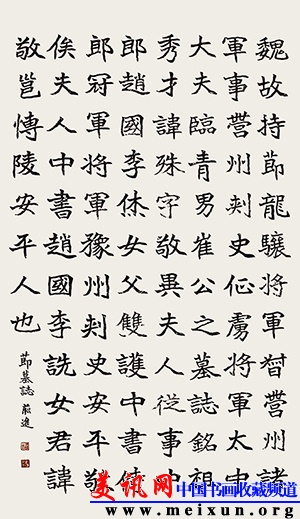 魏故持節龍驤將軍督營州諸
軍事營州刺史征虜將軍太中
大夫臨青男崔公之墓誌銘祖
秀才諱殊字敬異夫人從事中
郎趙國李休女父雙護中書侍
郎冠軍將軍豫州刺史安平敬
侯夫人中書趙國李詵女君諱
敬邕博陵安平人也
節墓誌 莊進
美讯网 中国书画收藏频道
www.meixun.org